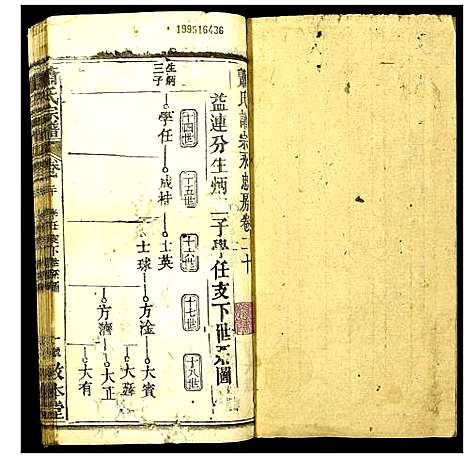 199516436
蕭氏譜宗永忠房卷二十
益連分生炳二子學任支下世系圖
十四世
十五世
十六世
十七世
十八世
生炳
三子
學任
成桂
士英
士球
方淦
方濟
大賓
大正
大有
蕭氏宗譜
卷二十
敦本堂